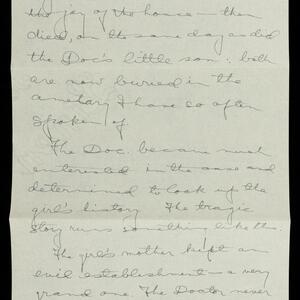 the joy of the house – then
died, on the same day as did
the Doc's little son; both
are now buried in the
cemetary I have so often
spoken of.
The Doc. became much
enterested in the case and
determined to look up the
girl's history The tragic
story runs something like this:
The girl's mother kept an
evil establishment – a very
grand one. The Doctor never